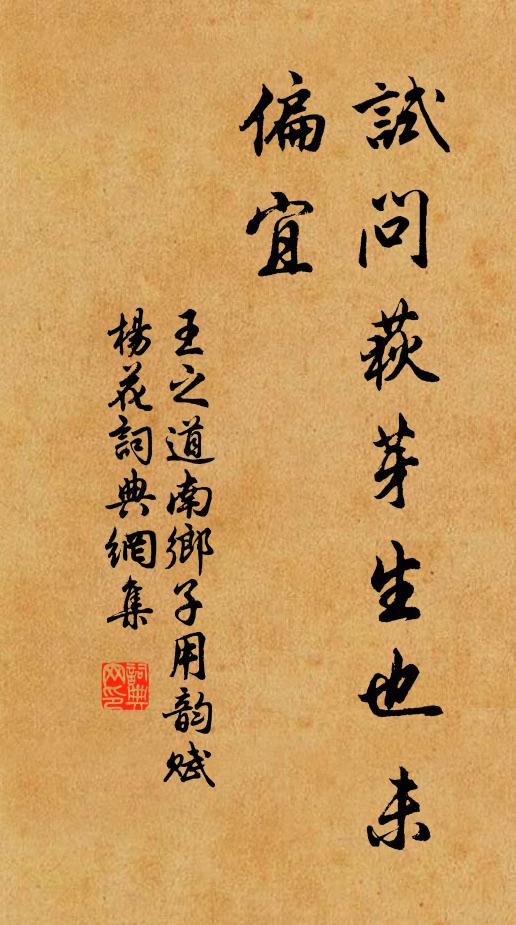 試問萩芽生也未
偏宜
王之道南鄉子用韵賦
楊花詞典網集
詞典網印